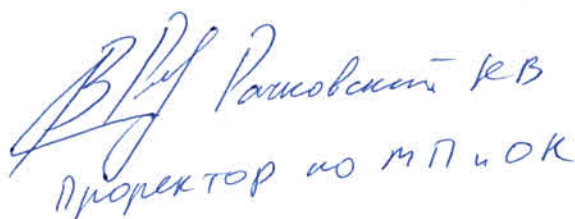 Рачковский КВ
Проректор по МП и ОК